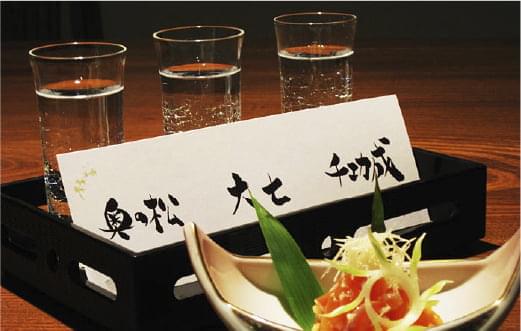 奥の松 大七 千功成